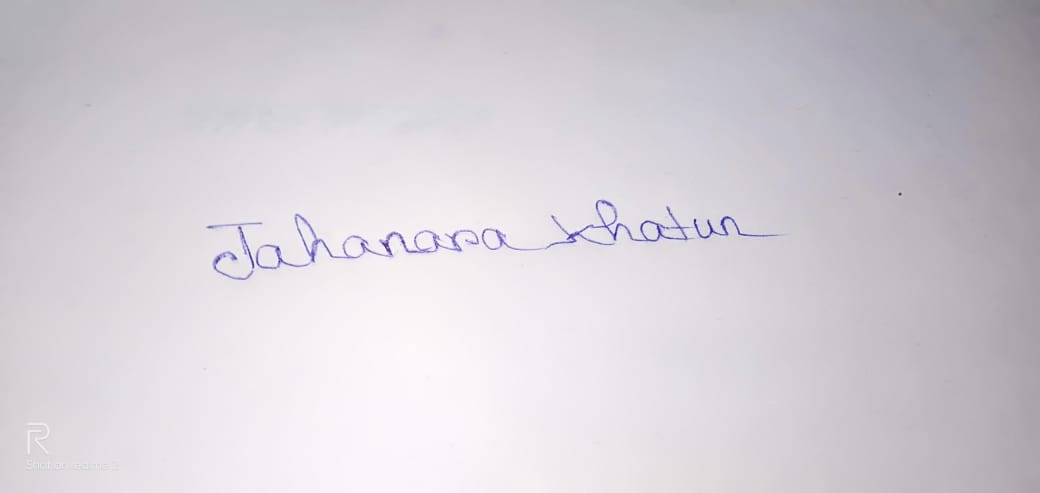 Jahanara Khatun
R
Shot on realme 2